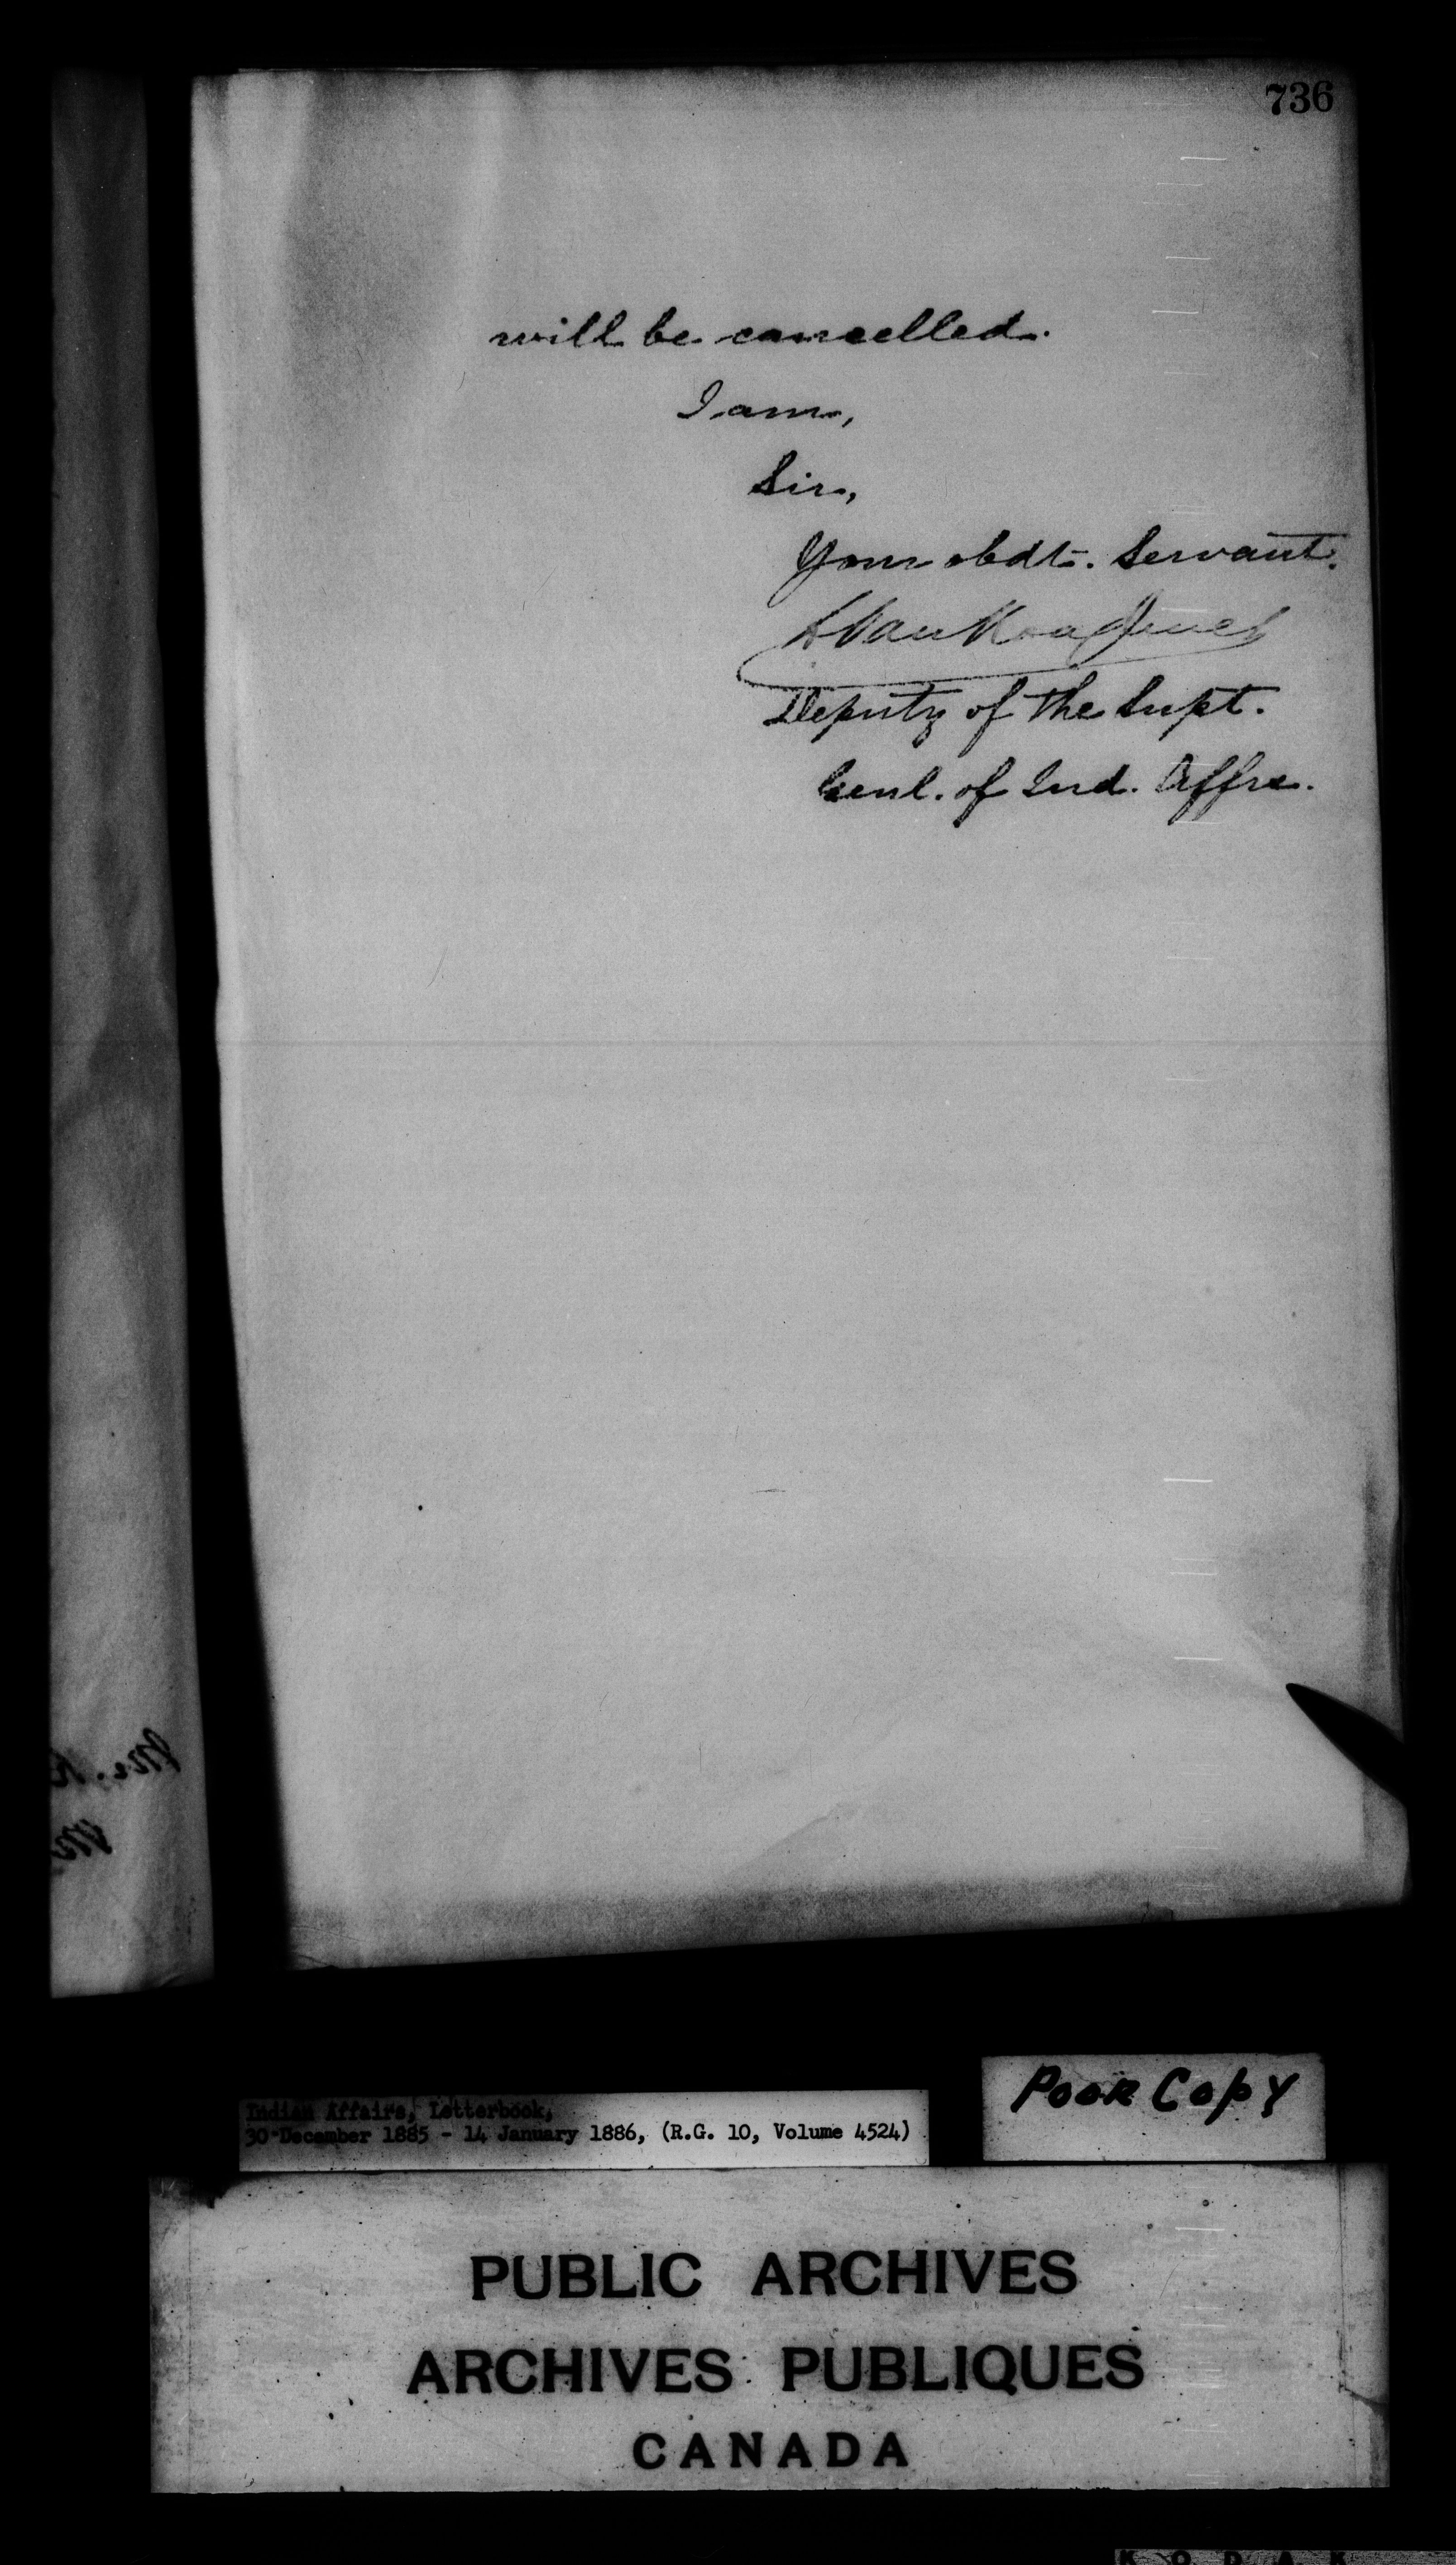 736
will be cancelled.
I am,
Sir,
Your obdt. Servant.
L. VanKoughnet
Deputy of the Supt.
Genl. of Ind. Affrs.
Indian Affairs, Letterbook,
30 December 1885 - 14 January 1886, (R.G. 10, Volume 4524)
POOR COPY
PUBLIC ARCHIVES
ARCHIVES PUBLIQUES
CANADA
KODAK